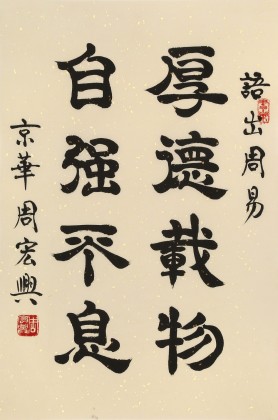 語出周易
厚德載物
自强不息
京華周宏興